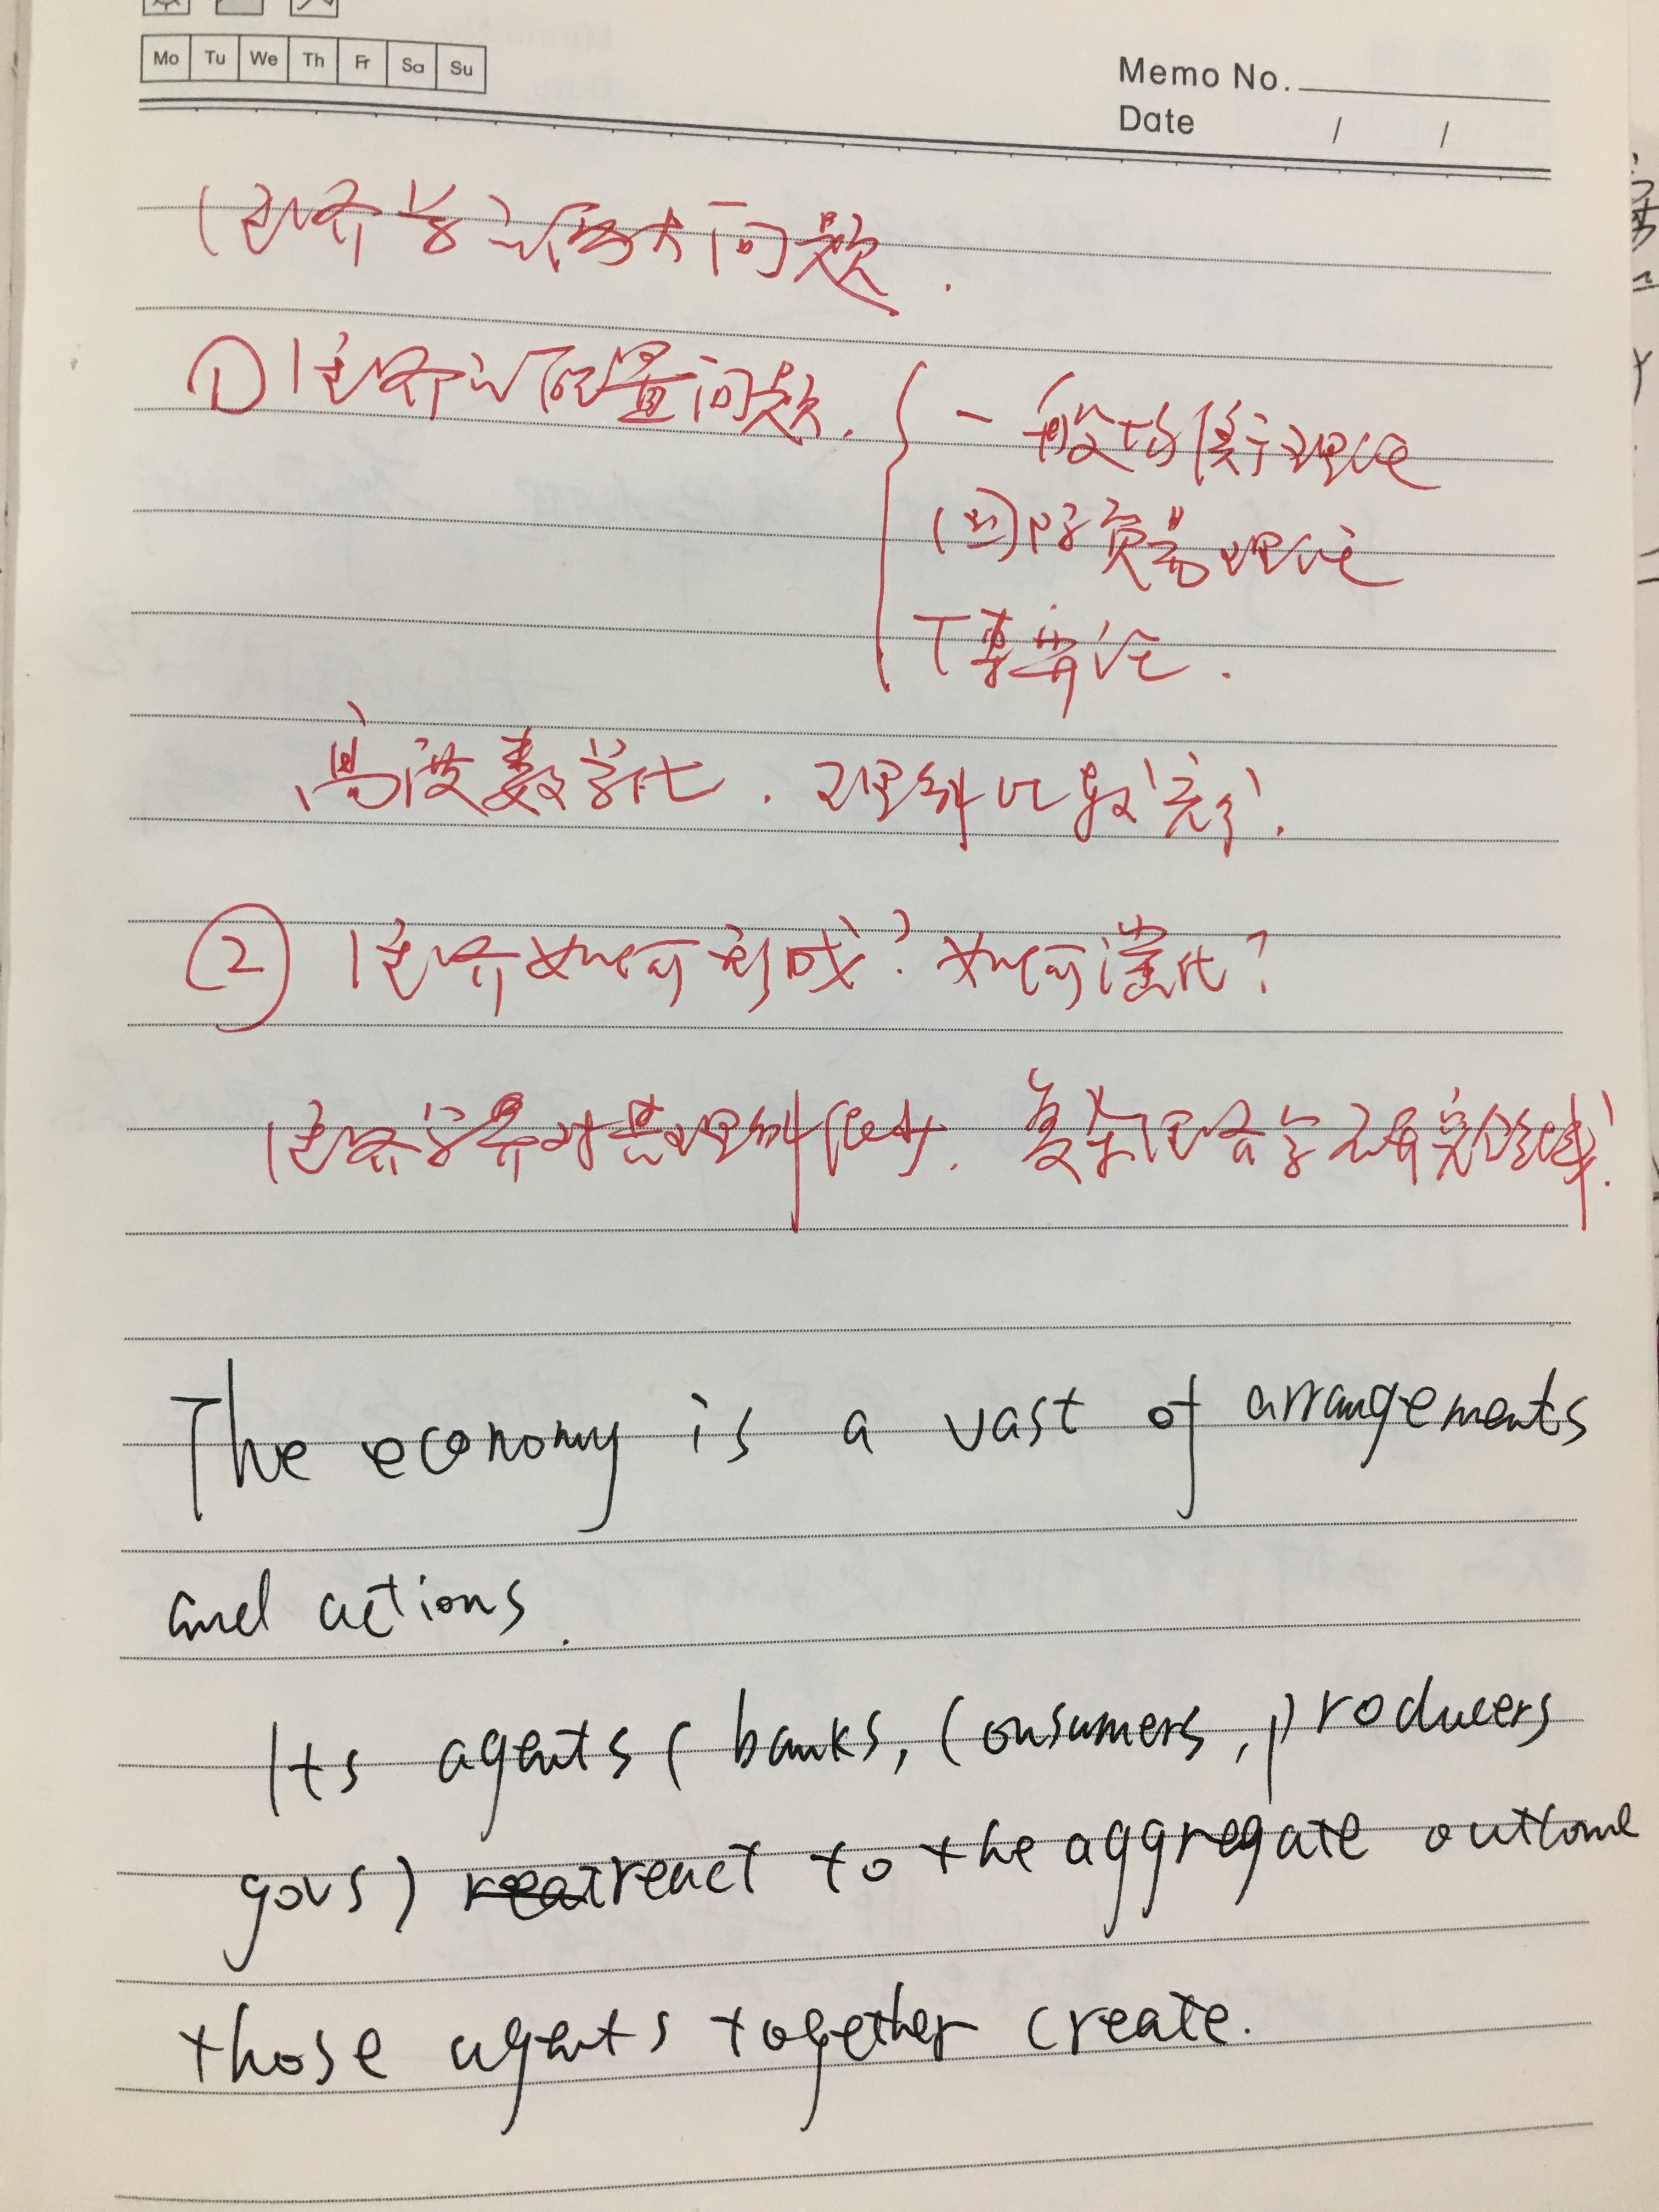 Mo Tu We Th Fr Sa Su
Memo No.
Date / /
经济学的两大问题.
① 经济的配置问题.
一般均衡理论
国际贸易理论
博弈论.
高度数学化. 理解比较充分.
② 经济如何形成? 如何演化?
经济学界对其理解很少. 复杂经济学研究领域!
The economy is a vast of arrangements
and actions.
Its agents (banks, consumers, producers
govs) react to the aggregate outcome
those agents together create.